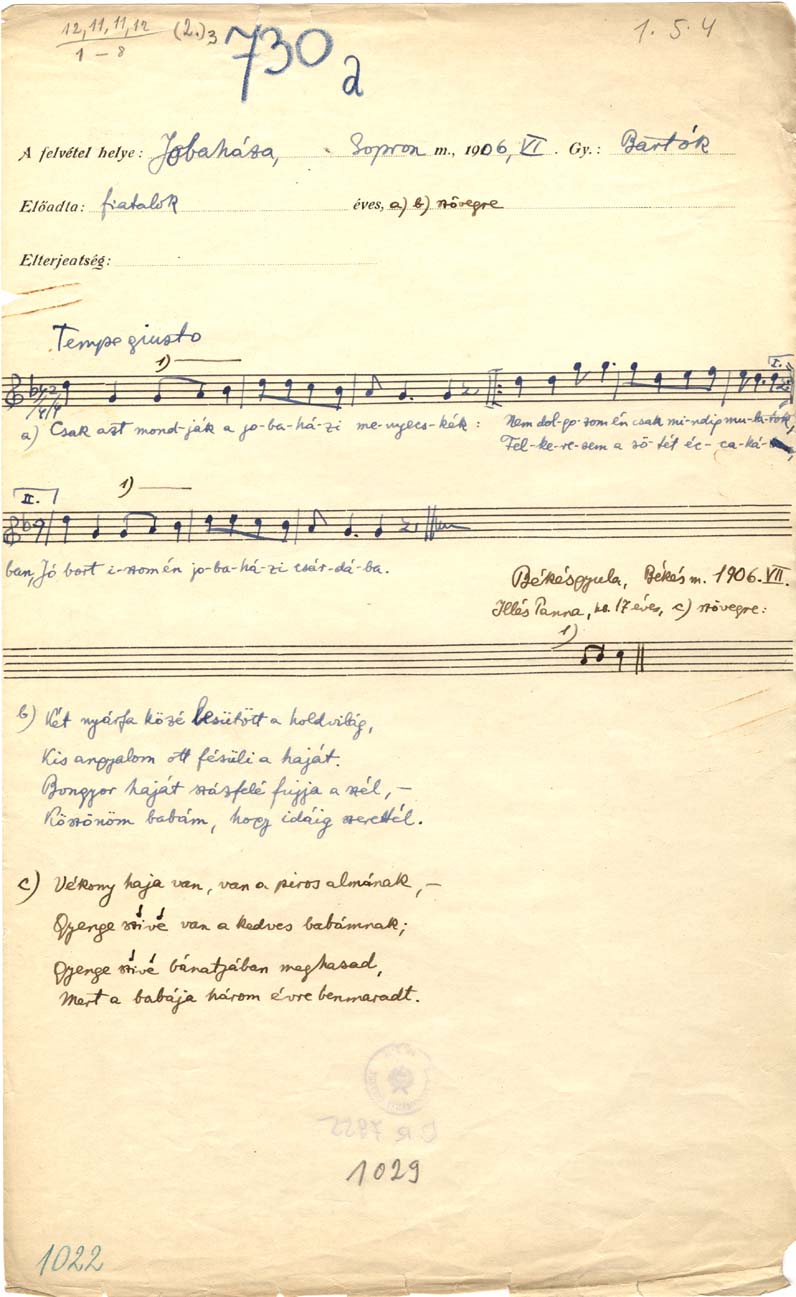 12, 11, 11, 12 (2.) 3
1 – 8
730 a
1.5.4
A felvétel helye: Jobaháza, Sopron m., 1906, VI. Gy.: Bartók
Előadta: fiatalok éves, a) b) szövegre
Elterjedtség:
Tempo giusto
1)
I.
a) Csak azt mond-ják a jo-ba-há-zi me-nyecs-kék: Nem dol-go-zom én csak min-díg mu-la-tok,
Fel-ke-re-sem a sö-tét éc-ca-ká-
II.
1)
ban, Jó bort i-szom én jo-ba-há-zi csár-dá-ba.
Békésgyula, Békés m. 1906. VII.
Illés Panna, 17 éves, c) szövegre:
1)
b) Két nyárfa közé besütött a holdvilág,
Kis angyalom ott fésüli a haját.
Bongyor haját szászfelé fujja a szél, –
Köszönöm babám, hogy idáig szerettél.
c) Vékony haja van, van a piros almának, –
Gyenge szívé van a kedves babámnak;
Gyenge szívé bánatjában meghasad,
Mert a babája három évre benmaradt.
1029
1022